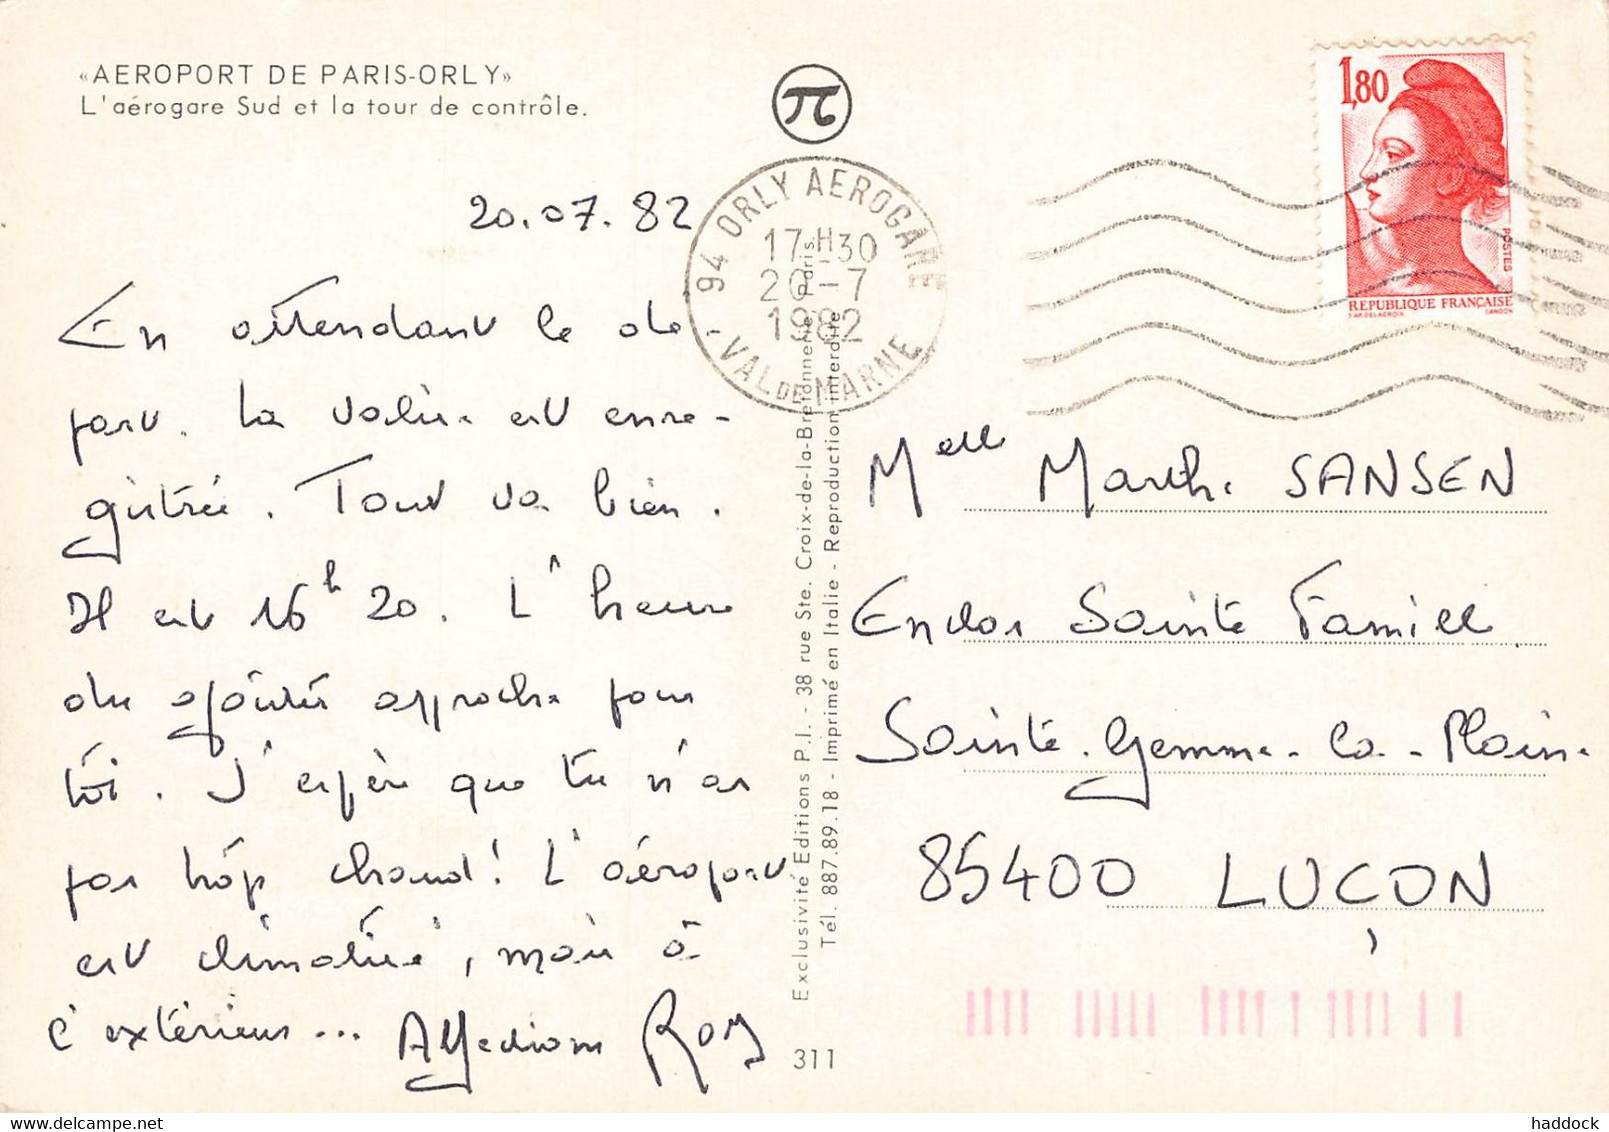 «AEROPORT DE PARIS-ORLY»
L'aérogare Sud et la tour de contrôle.
20.07.82
En attendant le dé-
part. La valise est enre-
gistrée. Tout va bien.
Il est 16h20. L'heure
du goûter approche pour
toi. J'espère que tu n'as
pas trop chaud! L'aéroport
est climatisé, mais à
l'extérieur... Affections Roy
94 ORLY AEROGARE
17H30
20-7
1982
-VAL DE MARNE
1,80
POSTES
REPUBLIQUE FRANÇAISE
D'AP. DELACROIX GANDON
Melle Marthe SANSEN
Enclos Sainte Famille
Sainte-Gemme-la-Plaine
85400 LUÇON
Exclusivité Editions P.I. - 38 rue Ste. Croix-de-la-Bretonnerie Paris.
Tél. 887.89.18 - Imprimé en Italie - Reproduction interdite
311
haddock